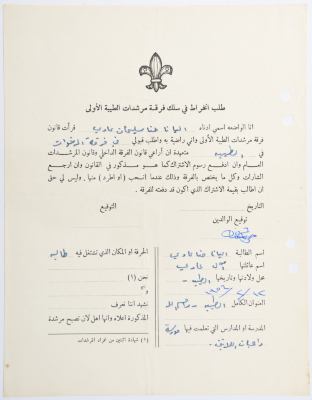 طلب انخراط في سلك فرقة مرشدات الطيبة الأولى
انا الواضعه اسمي ادناه اليانا حنا سليمان عادي قرأت قانون
فرقة مرشدات الطيبة الأولى واني راضية به واطلب قبولي في فرقة الزهرات
في الطيبه متعهدة ان أراعي قانون الفرقة الداخلي وقانون المرشدات
العام وان ادفع رسوم الاشتراك كما هو مذكور في القانون وان ارجع
الشارات وكل ما يختص بالفرقة وذلك عندما انسحب (او اطرد) منها. وليس لي حق
ان اطالب بقيمة الاشتراك الذي اكون قد دفعته للفرقة.
التاريخ
التوقيع
توقيع الوالدين
اسم الطالبة اليانا حنا عادي
اسم عائلتها
محل ولادتها وتاريخها الطيبه -
العنوان الكامل الطيبه -
المدرسة او المدارس التي تعلمت فيها مدرسة
راهبات اللاتين
الحرفة او المكان الذي تشتغل فيه طالبه
نحن (١)
و(٢)
نشهد اننا نعرف
المذكورة اعلاه وانها اهل لان تصبح مرشدة
(١) شهادة اثنين من افراد المرشدات